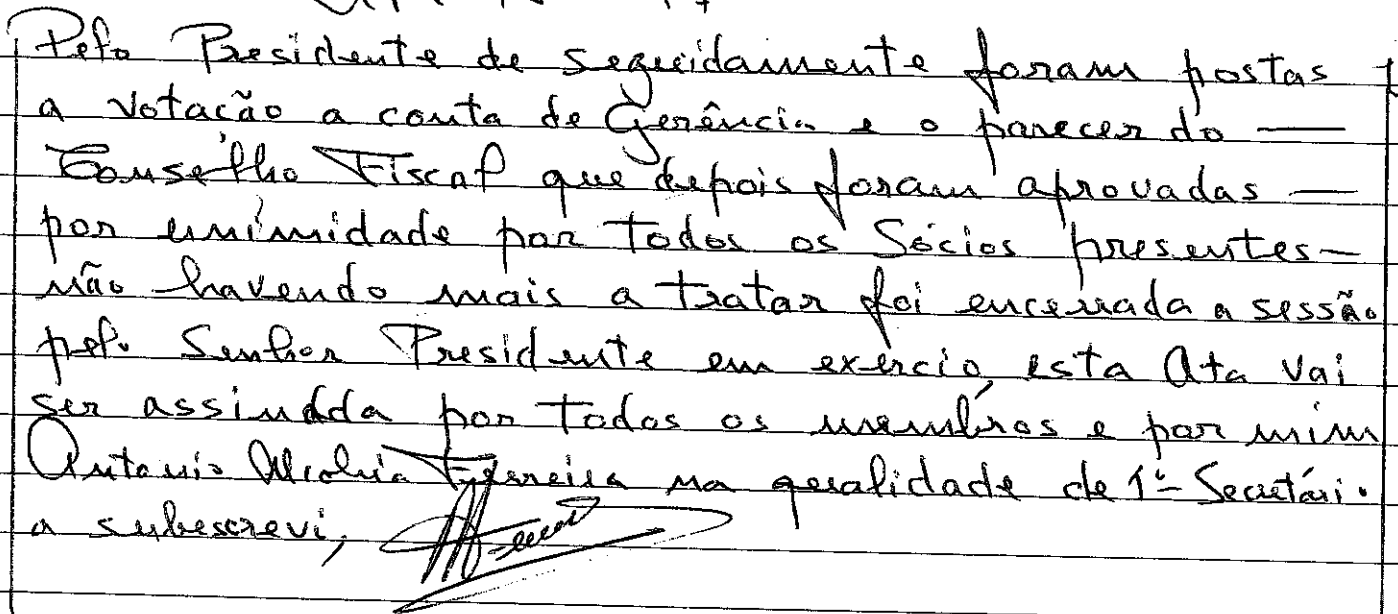 Pelo Presidente de seguidamente foram postas
a votação a conta de Gerência e o parecer do —
Conselho Fiscal que depois foram aprovadas —
por unimidade por todos os Sócios presentes -
não havendo mais a tratar foi encerrada a sessão
pelo Senhor Presidente em exercio, esta Ata vai
ser assinada por todos os membros e por mim
Antonio Ferreira na qualidade de 1º Secretário
a subescrevi,